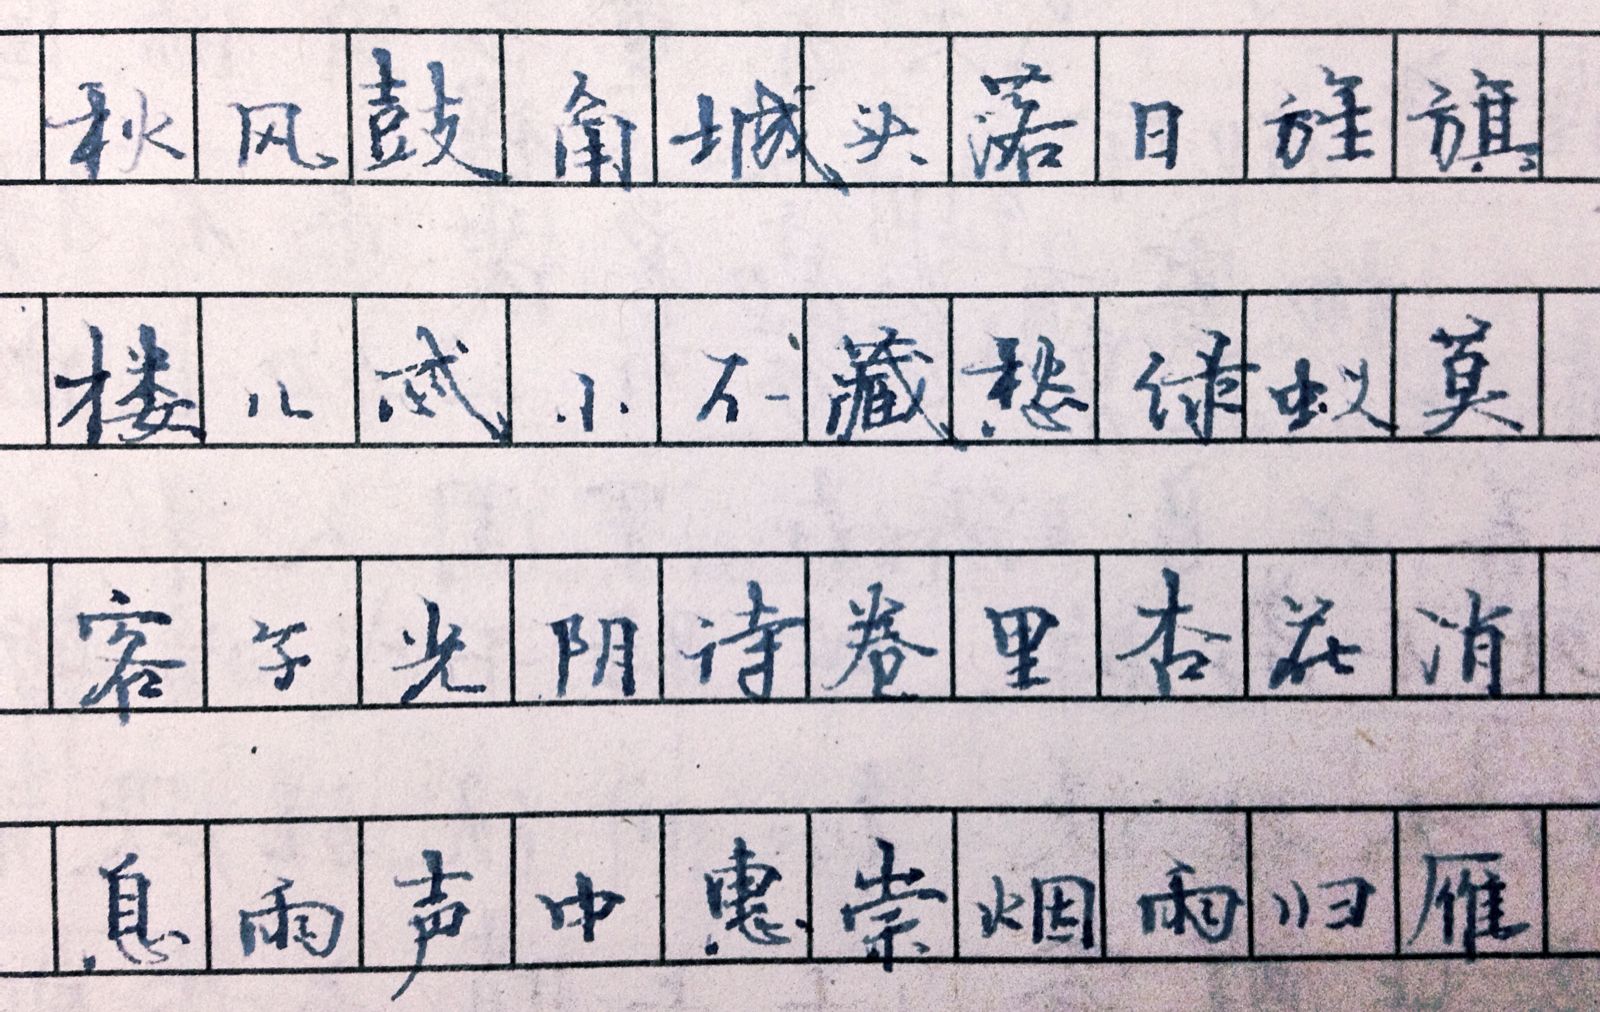 秋风鼓角城头落日旌旗
楼儿忒小不藏愁绿蚁莫
容子光阴诗卷里杏花消
息雨声中惠崇烟雨归雁